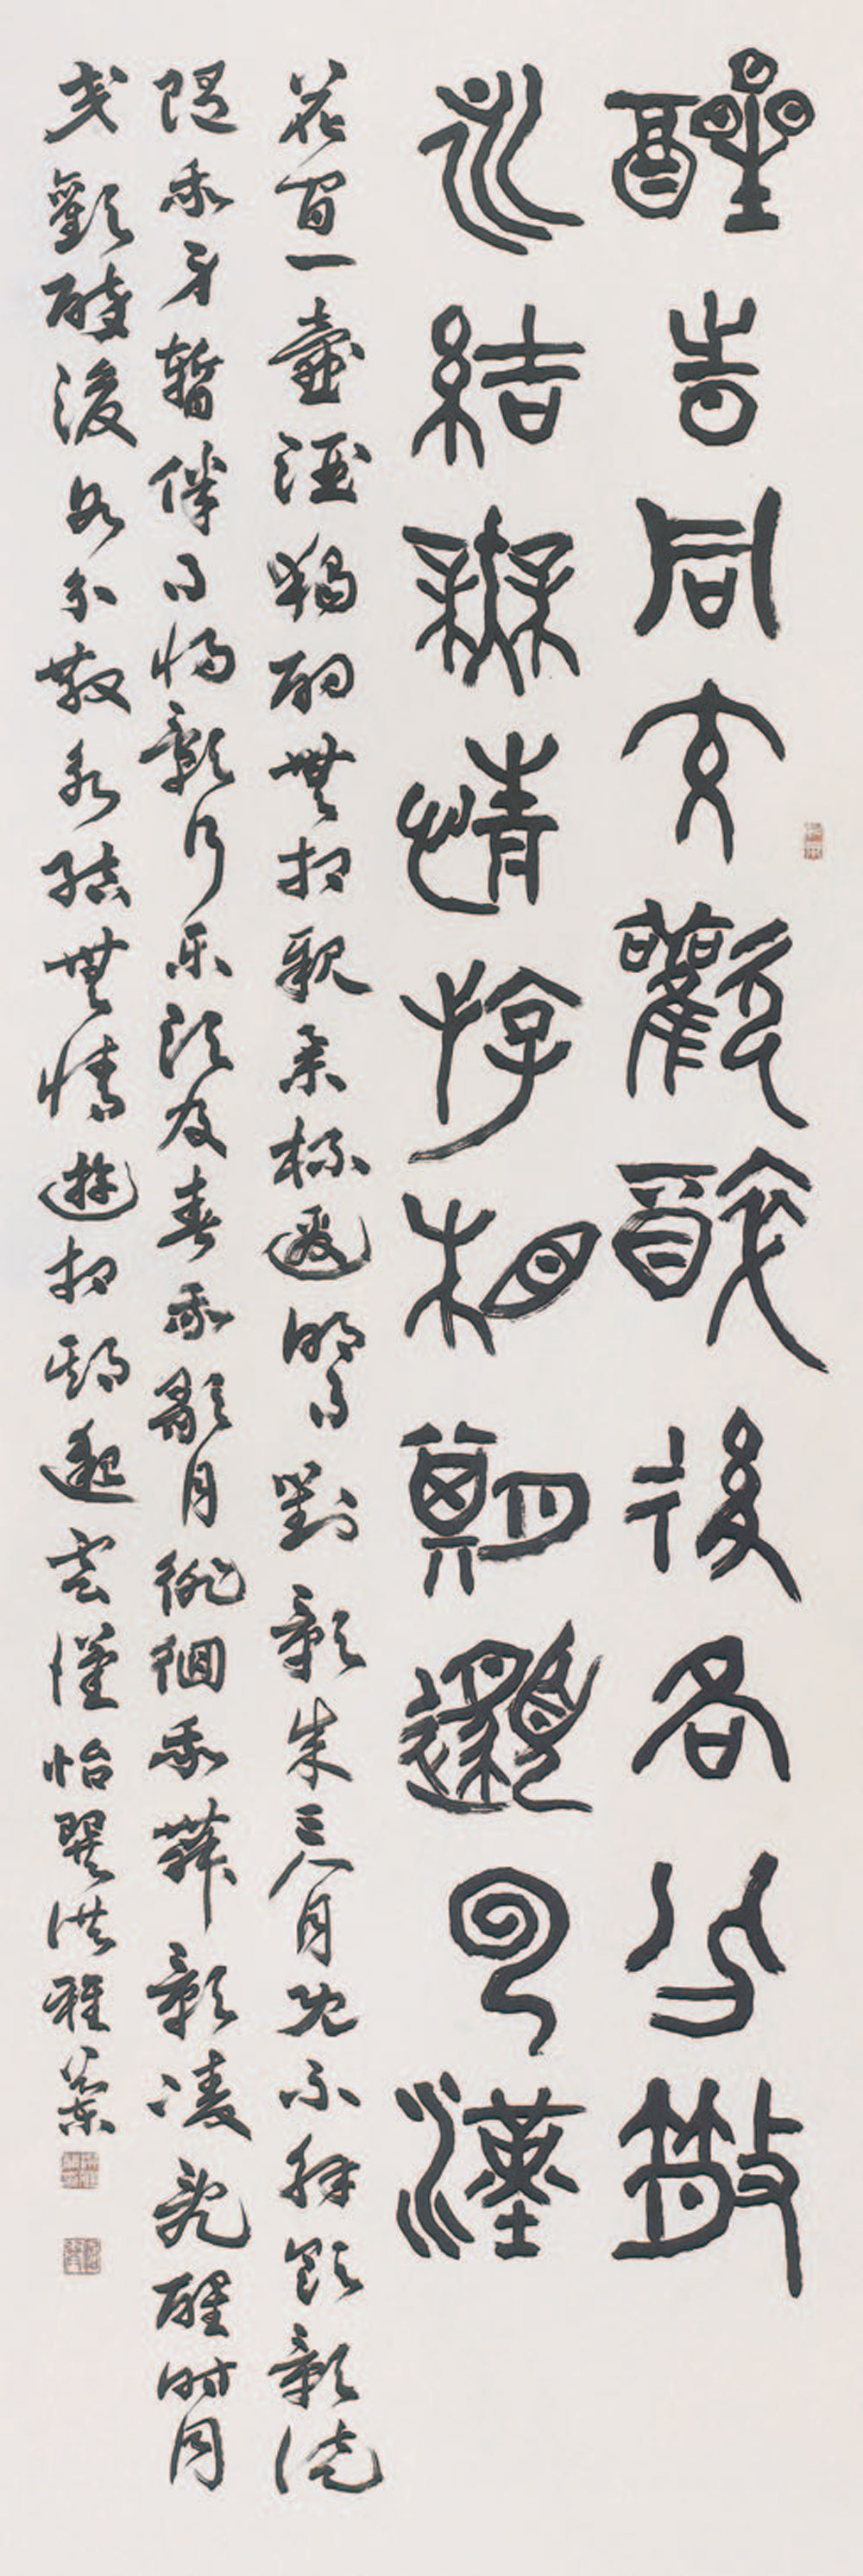 醒時同交歡醉後各分散
永結無情游相期邈雲漢
花間一壺酒獨酌無相親舉杯邀明月對影成三人月既不解飲影徒
隨我身暫伴月將影行樂須及春我歌月徘徊我舞影凌亂醒時同
交歡醉後各分散永結無情遊相期邈雲漢怡洪雅